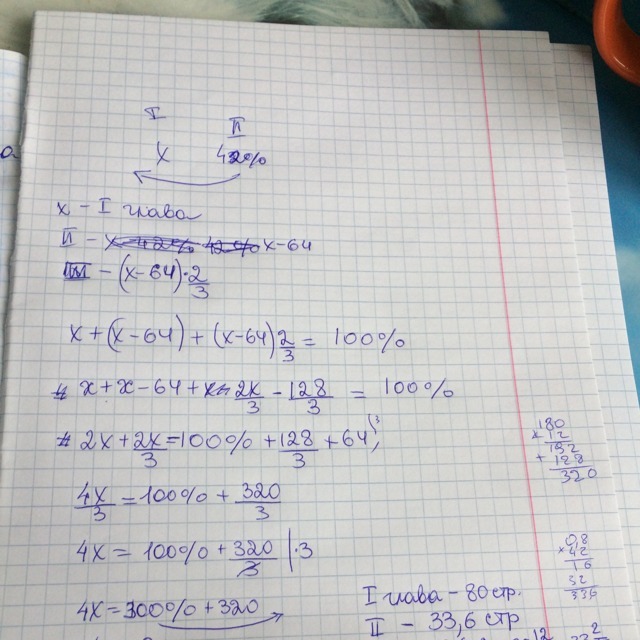 I II
x 42%
x - I глава
II - x-64
III - (x-64)·2/3
x+(x-64)+(x-64)2/3 = 100%
x+x-64+2x/3-128/3 = 100%
2x+2x/3=100%+128/3+64
4x/3=100%+320/3
4x=100%+320/3 |·3
4x=300%+320
I глава - 80 стр.
II - 33,6 стр
192
+128
320
0,8
×42
16
32
336